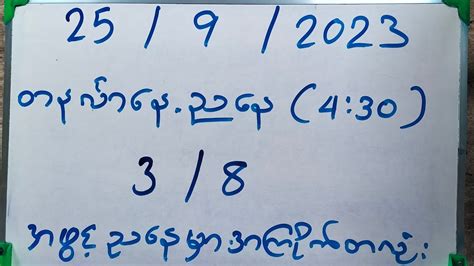 25 / 9 / 2023
တနင်္လာနေ့.ညနေ (4:30)
3 / 8
အဖွင့် ညနေမှာ အကြိုက်တလုံး